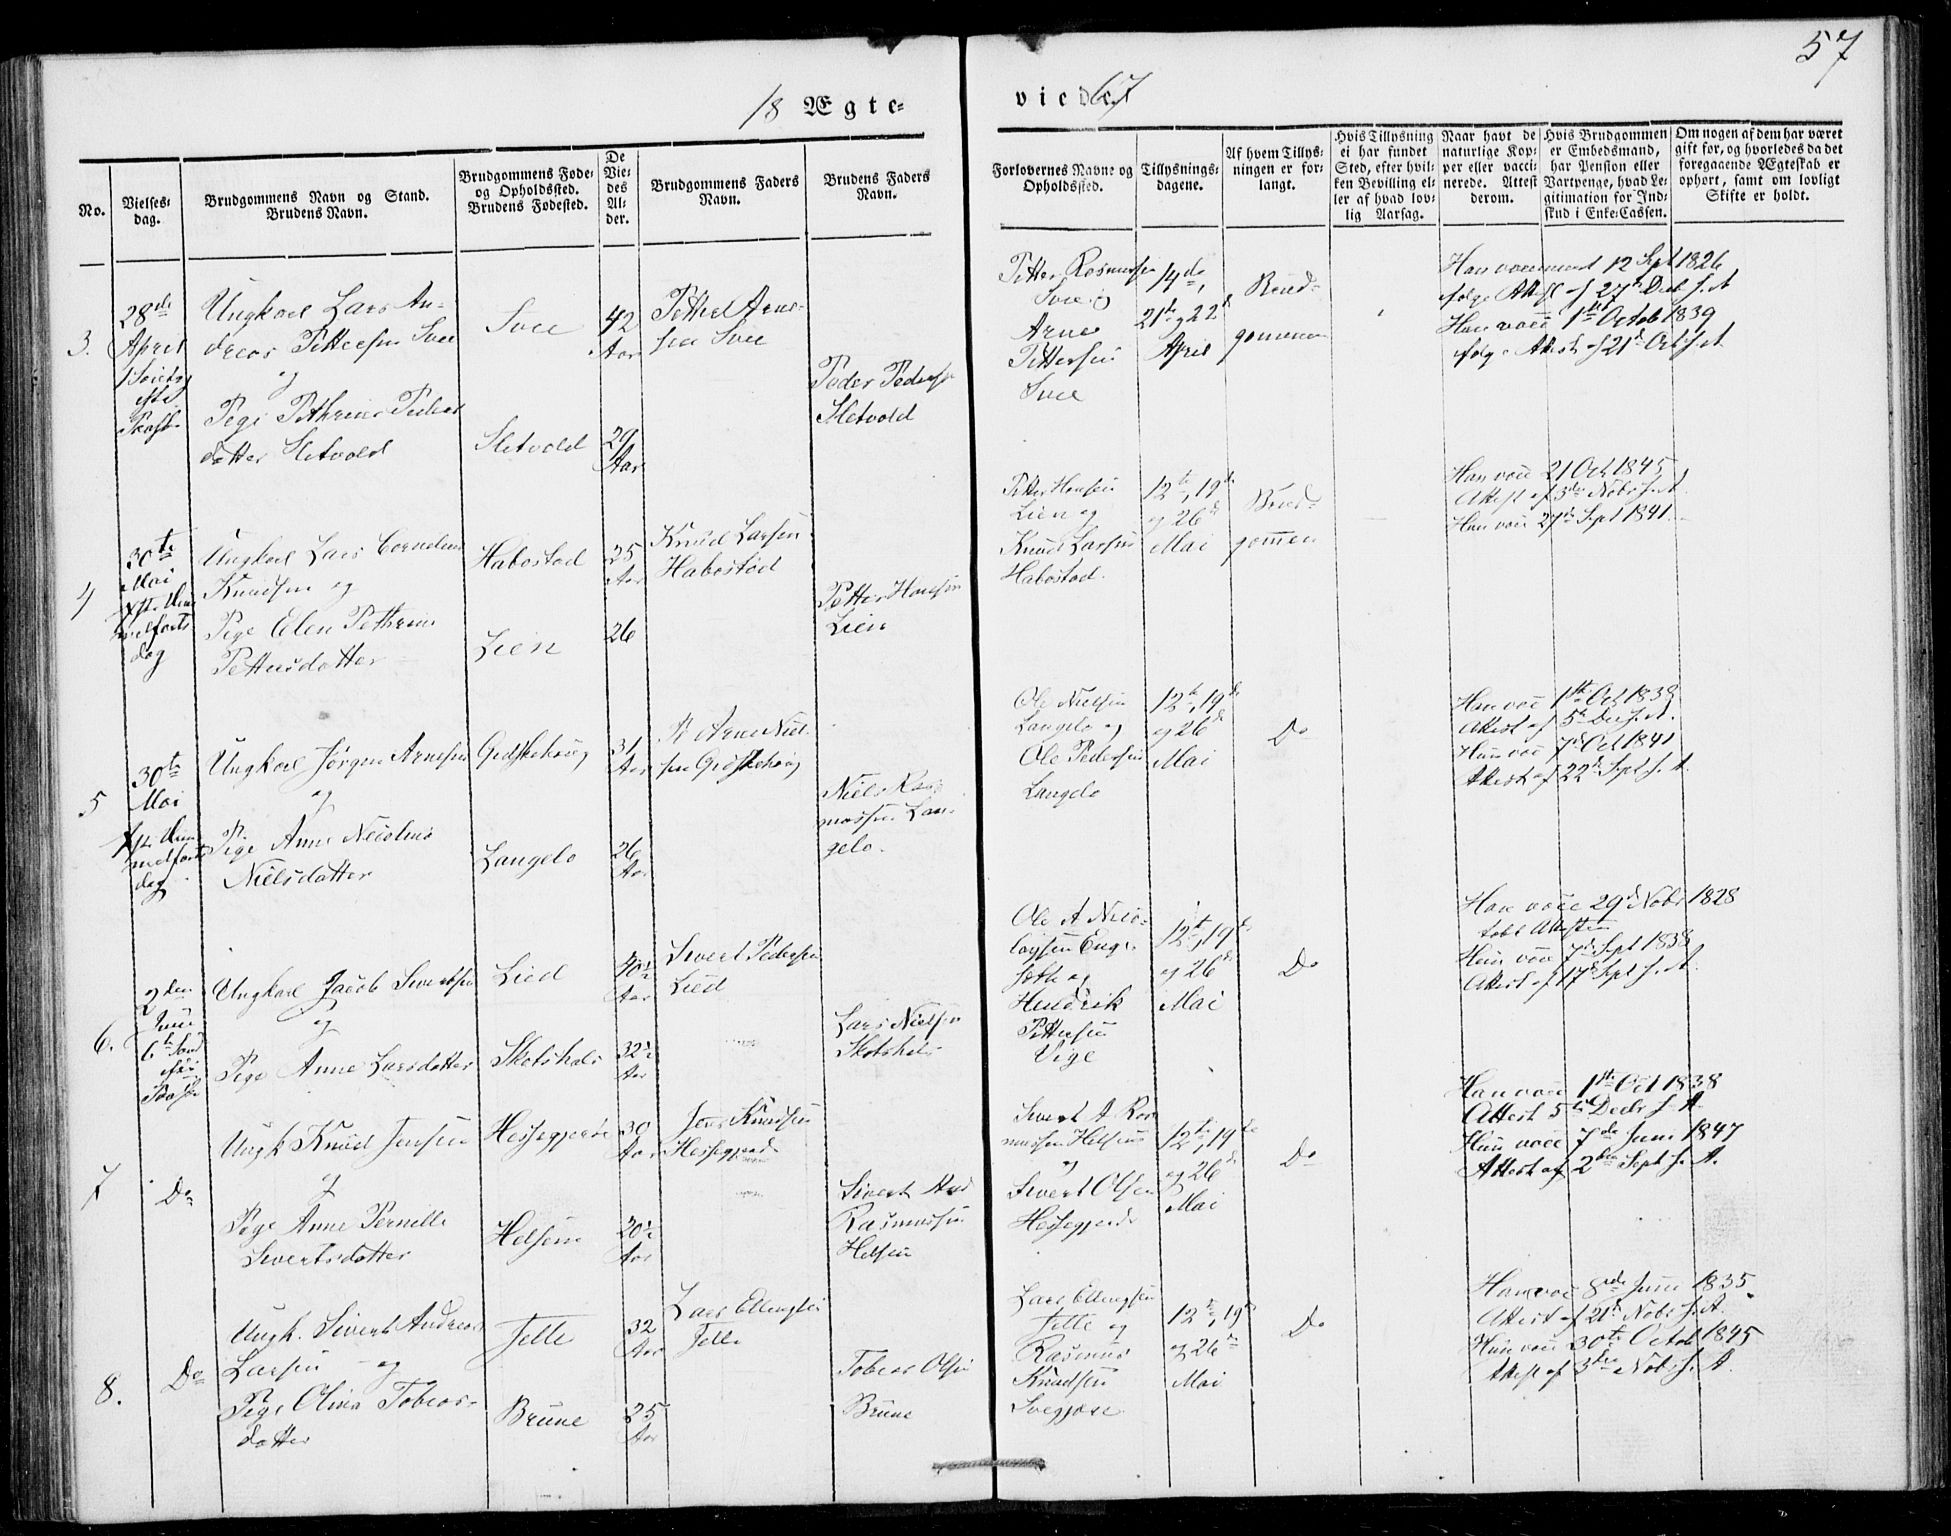 57
18 Ægte-
viede 67
No.
Vielses-
dag.
Brudgommens Navn og Stand.
Brudens Navn.
Brudgommens Føde-
og Opholdssted.
Brudens Fødested.
De
Vie-
des
Al-
der.
Brudgommens Faders
Navn.
Brudens Faders
Navn.
Forlovernes Navne og
Opholdssted.
Tillysnings-
dagene.
Af hvem Tillys-
ningen er for-
langt.
Hvis Tillysning
ei har fundet
Sted, efter hvil-
ken Bevilling el-
ler af hvad lov-
lig Aarsag.
Naar havt de
naturlige Kop-
per eller vacci-
nerede. Attest
derom.
Hvis Brudgommen
er Embedsmand,
har Pension eller
Vartpenge, hvad Le-
gitimation for Ind-
skud i Enke-Cassen.
Om nogen af dem har været
gift før, og hvorledes da det
foregaaende Ægteskab er
ophørt, samt om lovligt
Skifte er holdt.
3.
28de
April
Ungkarl Lars An-
dreas Pettersen Svee
og
Pige Pethrine Peders
datter Sletvold
Svee
Sletvold
42
Aar
29
Aar
Petter Arne-
sen Svee
Peder Peders
Sletvold
Petter Rasmussen
Svee og
Arne
Pettersen
Svee
14de,
21de, 22de
April
Brud-
gommen
12 Sept 1826
følge Attest af 27de Decb s. A
Hun vacc 1ste Octob 1839
følge Attest af 21de Oct s. A
4
30te
Mai
Ungkarl Lars Cornelius
Knudsen og
Pige Elen Pethrine
Pettersdatter
Habostad
Lien
25
Aar
26
Knud Larsen
Habostad
Petter Hansen
Lien
Petter Hansen
Lien og
Knud Larsen
Habostad.
12te, 19de
og 26de
Mai
Brud-
gommen
Han vacc 21 Oct 1845
Attest af 3de Nobr s. A.
Hun vacc 27de Sept 1841.
5
30te
Mai
dag
Ungkarl Jørgen Arnesen
og
Pige Anne Nicoline
Nielsdatter
Gidskehoug
Langelo
31
Aar
26
Aar
Arne Niel-
sen Gidskehoug
Niels Ras-
mussen Lan-
gelo.
Ole Nielsen
Langelo og
Ole Pedersen
Langelo
12te, 19de
og 26de
Mai
Do
Han vacc 1ste Oct 1838
Attest af 5te Dec s. A.
Hun vacc 7de Oct 1841
Attest af 22de Sept s. A.
6.
2den
Juni
Ungkarl Jacob Sivertsen
og
Pige Anne Larsdatter
Lied
Skotshals
40½
Aar
32½
Aar
Sivert Pedersen
Lied
Lars Nielsen
Skotshals
Ole A Nico-
laysen Enge-
sætte og
Hendrik
Pettersen
Vige
12te, 19de
og 26de
Mai
Do
Han vacc 29de Nobr 1828
tabt Attesten
Hun vacc 7de Sept 1838
Attest af 17de Sept s. A.
7
Do
Ungk Knud Jensen
og
Pige Anne Pernelle
Sivertsdatter
Helsem
30
Aar
20½
Aar
Jens Knudsen
Hessegjerde
Sivert And
Rasmussen
Helsem
Sivert A Ras
mussen Helsem
og
Sivert Olsen
Hessegjerde
12te, 19de
og 26de
Mai
Do
Han vacc 1ste Oct 1838
Attest 5te Decbr s. A.
Hun vacc 7de Juni 1847
Attest af 2den Sept s. A.
8.
Do
Ungk. Sivert Andreas
Larsen og
Pige Olina Tobias-
datter
Jelle
Brune
32
Aar
25
Aar
Lars Ellingsen
Jelle
Tobias Olsen
Brune
Lars Ellingsen
Jelle og
Rasmus
Knudsen
12te, 19de
og 26de
Mai
Do
Han vacc 8de Juni 1835
Attest af 21de Nobr s. A.
Hun vacc 30te Octob 1845
Attest af 3die Nobr s. A.